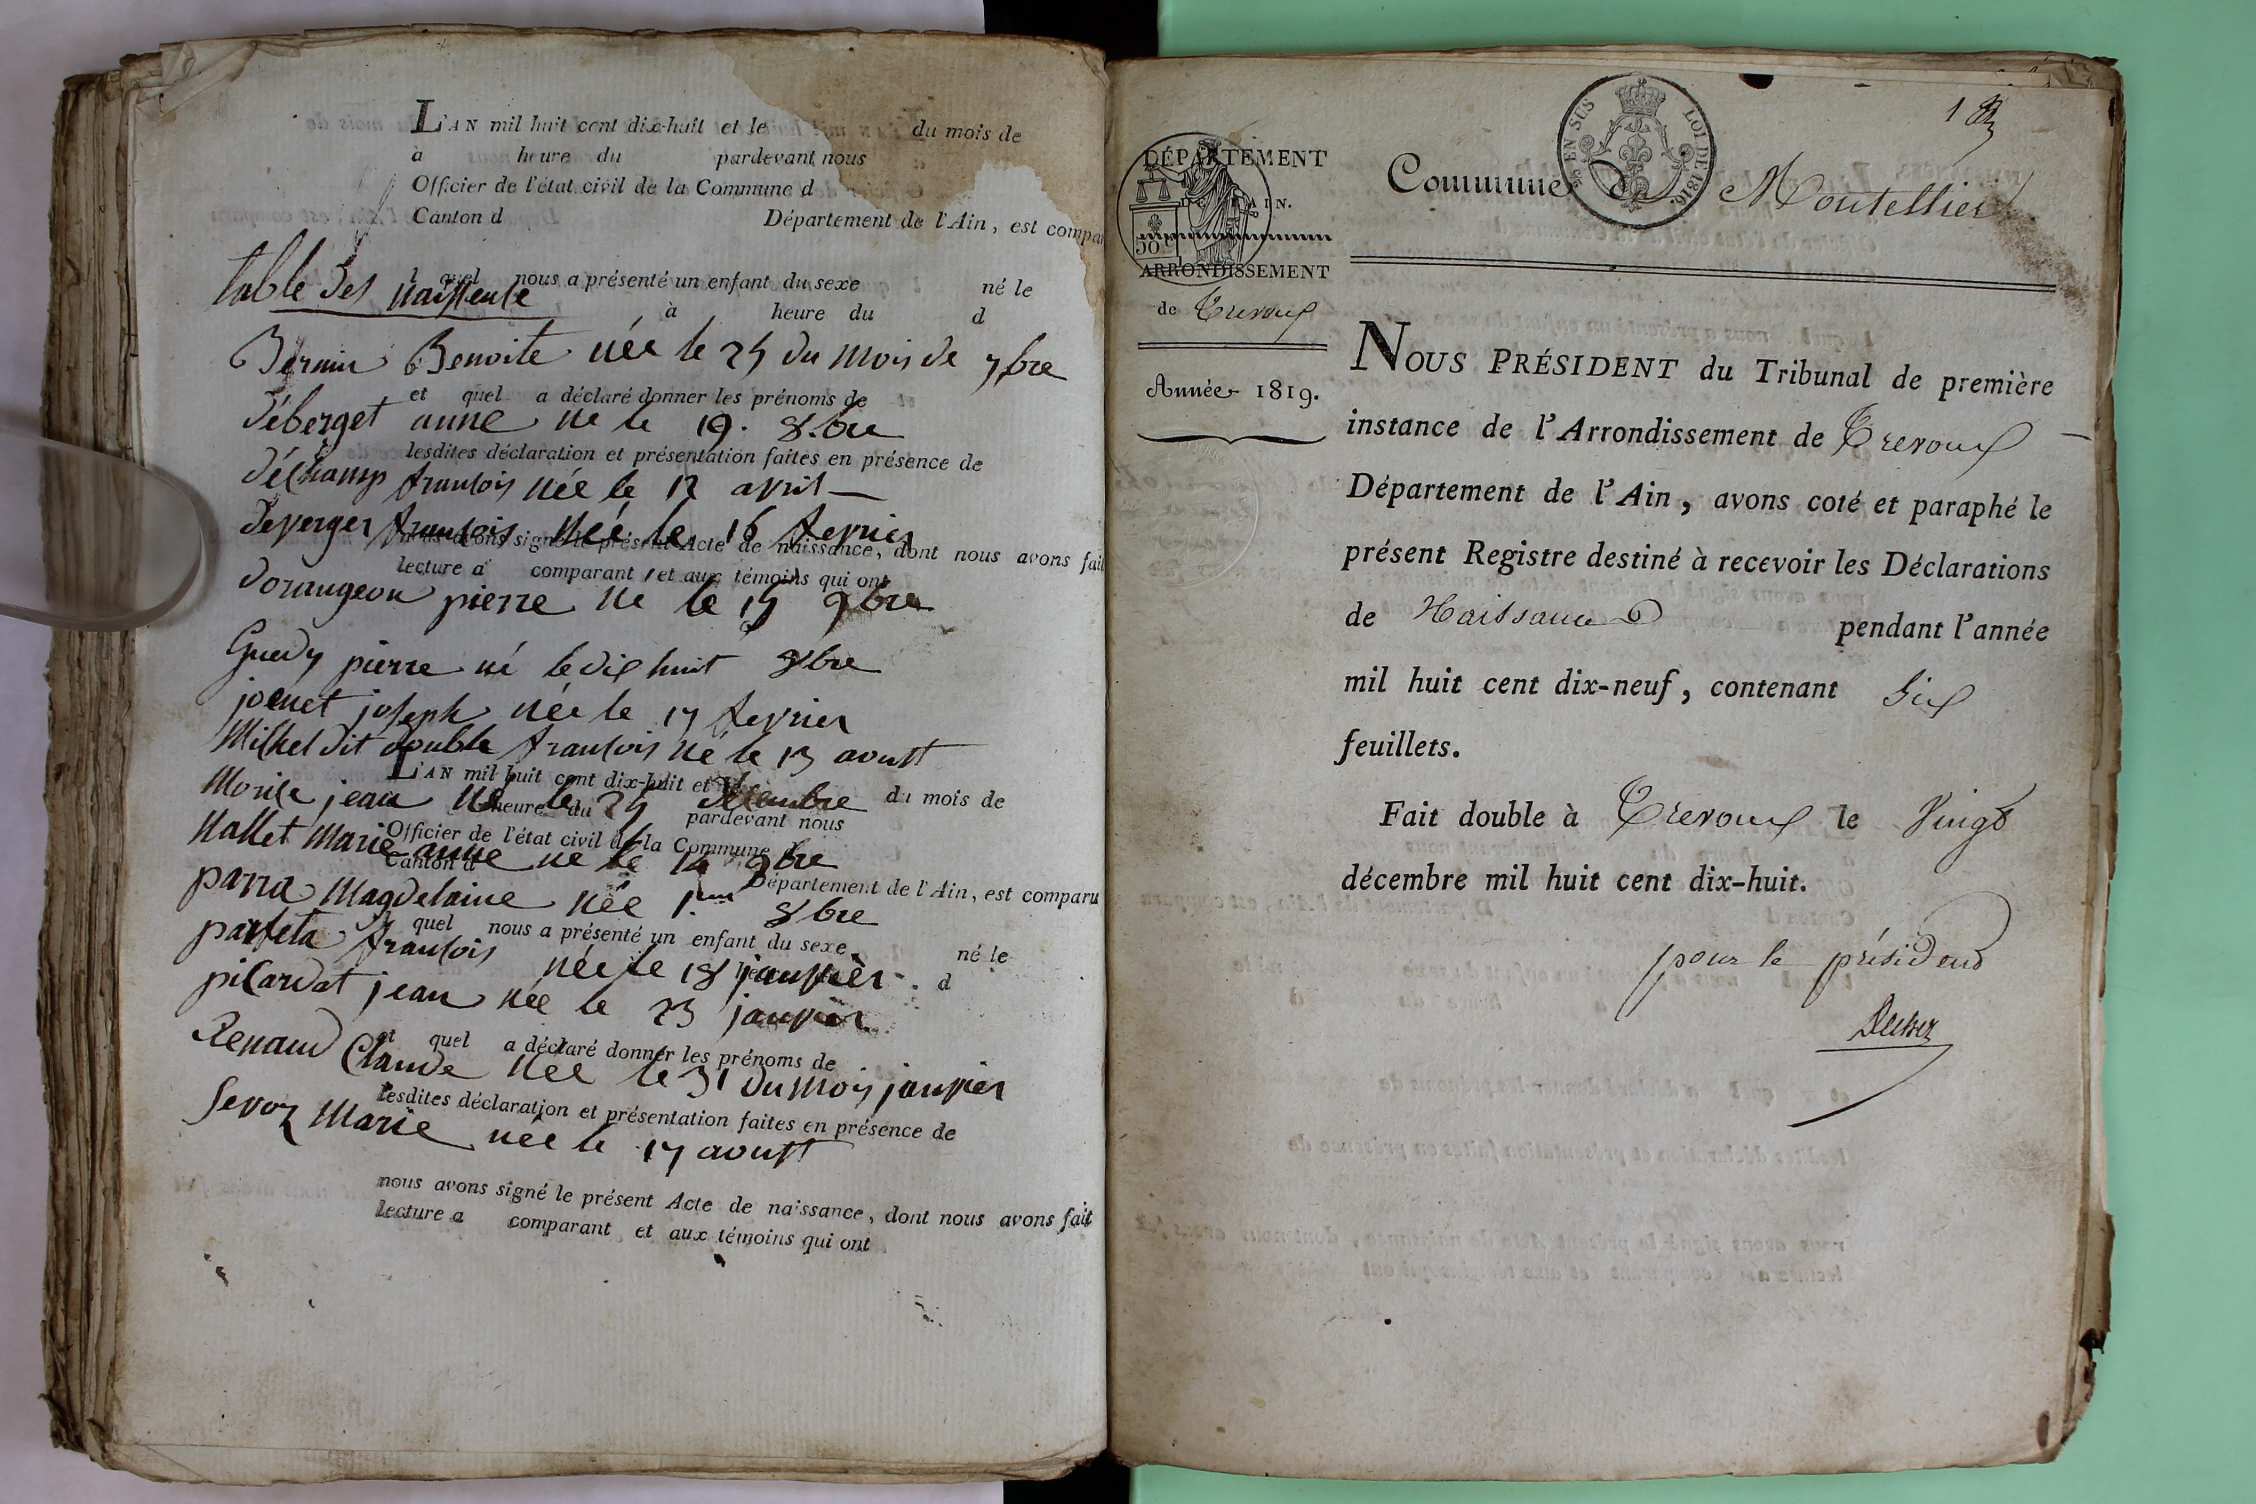 L'AN mil huit cent dix-huit et le du mois de
à heure du pardevant nous
Officier de l'état civil de la Commune d
Canton d Département de l'Ain, est compar
l quel nous a présenté un enfant du sexe né le
table des naissense
à heure du d
Bernin Benoite née le 25 du mois de 7bre
et quel a déclaré donner les prénoms de
déberget anne ne le 19. 8.bre
lesdites déclaration et présentation faites en présence de
déchamp francois née le 12 avril
deverger francois née le 16 fevrier
nous avons signé le présent Acte de naissance, dont nous avons fait
lecture a comparant et aux témoins qui ont
dorangeon pierre ne le 15 9bre
Guedy pierre né le dix huit 8bre
jocnet joseph née le 17 fevrier
Michel dit double francois né le 13 aoust
L'AN mil huit cent dix-huit et le du mois de
jean ne le 25
heure du pardevant nous
Officier de l'état civil de la Commune d
Nallet Marie anne ne le 14 9bre
Canton d Département de l'Ain, est comparu
parra Magdelaine née 1er 8bre
l quel nous a présenté un enfant du sexe né le
francois née le 18 janvier
d
picardat jean née le 23 janvier
et quel a déclaré donner les prénoms de
Renaud Claude née le 31 du mois janvier
lesdites déclaration et présentation faites en présence de
Sevoz Marie née le 17 aoust
nous avons signé le présent Acte de naissance, dont nous avons fait
lecture a comparant et aux témoins qui ont
1er
EN SUS LOI DE 1816.
DÉPARTEMENT
DE L'AIN.
50
ARRONDISSEMENT
de Trevoux
Année 1819.
Commune de Montellier
NOUS PRÉSIDENT du Tribunal de première
instance de l'Arrondissement de Trevoux
Département de l'Ain, avons coté et paraphé le
présent Registre destiné à recevoir les Déclarations
de Naissance pendant l'année
mil huit cent dix-neuf, contenant Six
feuillets.
Fait double à Trevoux le Vingt
décembre mil huit cent dix-huit.
pour le président